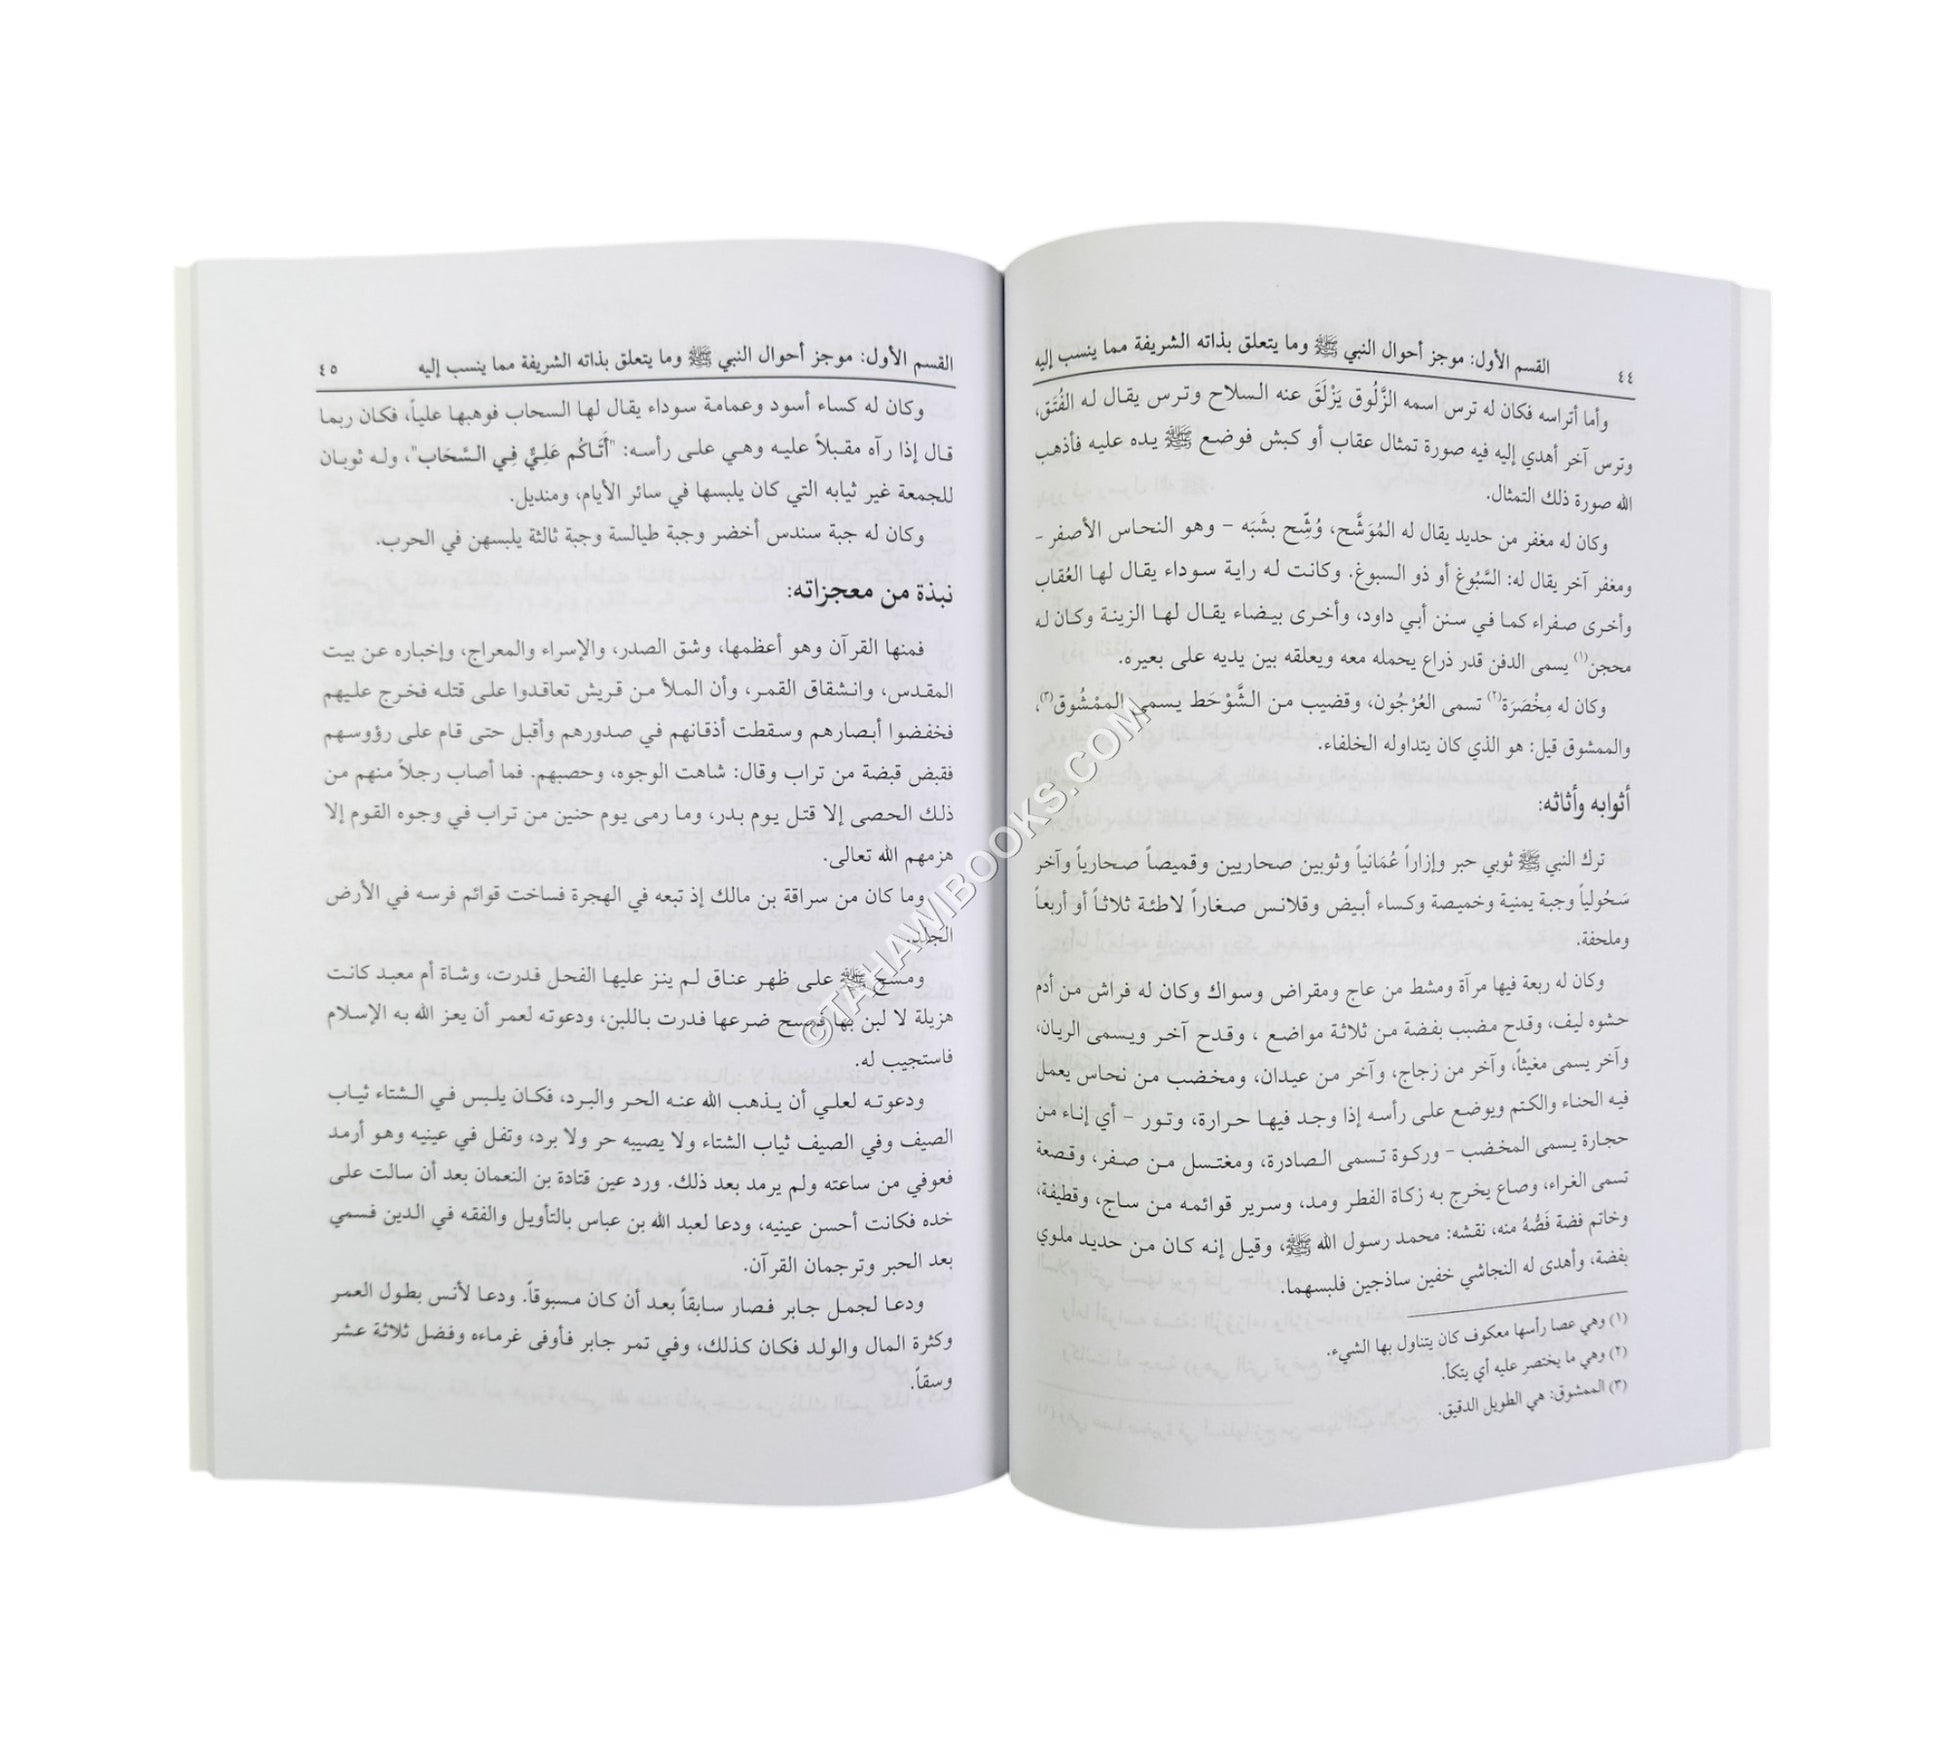 ٤٤ القسم الأول: موجز أحوال النبي ﷺ وما يتعلق بذاته الشريفة مما ينسب إليه
وأما أتراسه فكان له ترس اسمه الزَّلُوق يَزْلَقَ عنه السلاح وترس يقال له الفُتَق،
وترس آخر أهدي إليه فيه صورة تمثال عقاب أو كبش فوضع ﷺ يده عليه فأذهب
الله صورة ذلك التمثال.
وكان له مغفر من حديد يقال له المُوَشَّح، وُشِّح بشَبَه – وهو النحاس الأصفر –
ومغفر آخر يقال له: السَّبُوغ أو ذو السبوغ. وكانت له راية سوداء يقال لها العُقاب
وأخرى صفراء كما في سنن أبي داود، وأخرى بيضاء يقال لها الزينة وكان له
محجن(١) يسمى الدفن قدر ذراع يحمله معه ويعلقه بين يديه على بعيره.
وكان له مِخْصَرَة(٢) تسمى العُرْجُون، وقضيب من الشَّوْحَط يسمى الممْشُوق(٣)،
والممشوق قيل: هو الذي كان يتداوله الخلفاء.
أثوابه وأثاثه:
ترك النبي ﷺ ثوبي حبر وإزاراً عُمَانياً وثوبين صحاريين وقميصاً صحارياً وآخر
سَحُولياً وجبة يمنية وخميصة وكساء أبيض وقلانس صغاراً لاطئة ثلاثاً أو أربعاً
وملحفة.
وكان له ربعة فيها مرآة ومشط من عاج ومقراض وسواك وكان له فراش من أدم
حشوه ليف، وقدح مضبب بفضة من ثلاثة مواضع ، وقدح آخر ويسمى الريان،
وآخر يسمى مغيثاً، وآخر من زجاج، وآخر من عيدان، ومخضب من نحاس يعمل
فيه الحناء والكتم ويوضع على رأسه إذا وجد فيها حرارة، وتور – أي إناء من
حجارة يسمى المخضب – وركوة تسمى الصادرة، ومغتسل من صفر، وقصعة
تسمى الغراء، وصاع يخرج به زكاة الفطر ومد، وسرير قوائمه من ساج، وقطيفة،
وخاتم فضة فَصُّهُ منه، نقشه: محمد رسول الله ﷺ، وقيل إنه كان من حديد ملوي
بفضة، وأهدى له النجاشي خفين ساذجين فلبسهما.
(١) وهي عصا رأسها معكوف كان يتناول بها الشيء.
(٢) وهي ما يختصر عليه أي يتكأ.
(٣) الممشوق: هي الطويل الدقيق.
القسم الأول: موجز أحوال النبي ﷺ وما يتعلق بذاته الشريفة مما ينسب إليه ٤٥
وكان له كساء أسود وعمامة سوداء يقال لها السحاب فوهبها علياً، فكان ربما
قال إذا رآه مقبلاً عليه وهي على رأسه: "أَتَاكُم عَلِيٌّ فِي السَّحَاب"، وله ثوبان
للجمعة غير ثيابه التي كان يلبسها في سائر الأيام، ومنديل.
وكان له جبة سندس أخضر وجبة طيالسة وجبة ثالثة يلبسهن في الحرب.
نبذة من معجزاته:
فمنها القرآن وهو أعظمها، وشق الصدر، والإسراء والمعراج، وإخباره عن بيت
المقدس، وانشقاق القمر، وأن الملأ من قريش تعاقدوا على قتله فخرج عليهم
فخفضوا أبصارهم وسقطت أذقانهم في صدورهم وأقبل حتى قام على رؤوسهم
فقبض قبضة من تراب وقال: شاهت الوجوه، وحصبهم. فما أصاب رجلاً منهم من
ذلك الحصى إلا قتل يوم بدر، وما رمى يوم حنين من تراب في وجوه القوم إلا
هزمهم الله تعالى.
وما كان من سراقة بن مالك إذ تبعه في الهجرة فساخت قوائم فرسه في الأرض
الجلد.
ومسح ﷺ على ظهر عناق لم ينز عليها الفحل فدرت، وشاة أم معبد كانت
هزيلة لا لبن بها فمسح ضرعها فدرت باللبن، ودعوته لعمر أن يعز الله به الإسلام
فاستجيب له.
ودعوته لعلي أن يذهب الله عنه الحر والبرد، فكان يلبس في الشتاء ثياب
الصيف وفي الصيف ثياب الشتاء ولا يصيبه حر ولا برد، وتفل في عينيه وهو أرمد
فعوفي من ساعته ولم يرمد بعد ذلك. ورد عين قتادة بن النعمان بعد أن سالت على
خده فكانت أحسن عينيه، ودعا لعبد الله بن عباس بالتأويل والفقه في الدين فسمي
بعد الحبر وترجمان القرآن.
ودعا لجمل جابر فصار سابقاً بعد أن كان مسبوقاً. ودعا لأنس بطول العمر
وكثرة المال والولد فكان كذلك، وفي تمر جابر فأوفى غرماءه وفضل ثلاثة عشر
وسقاً.
©TAHAWIBOOKS.COM